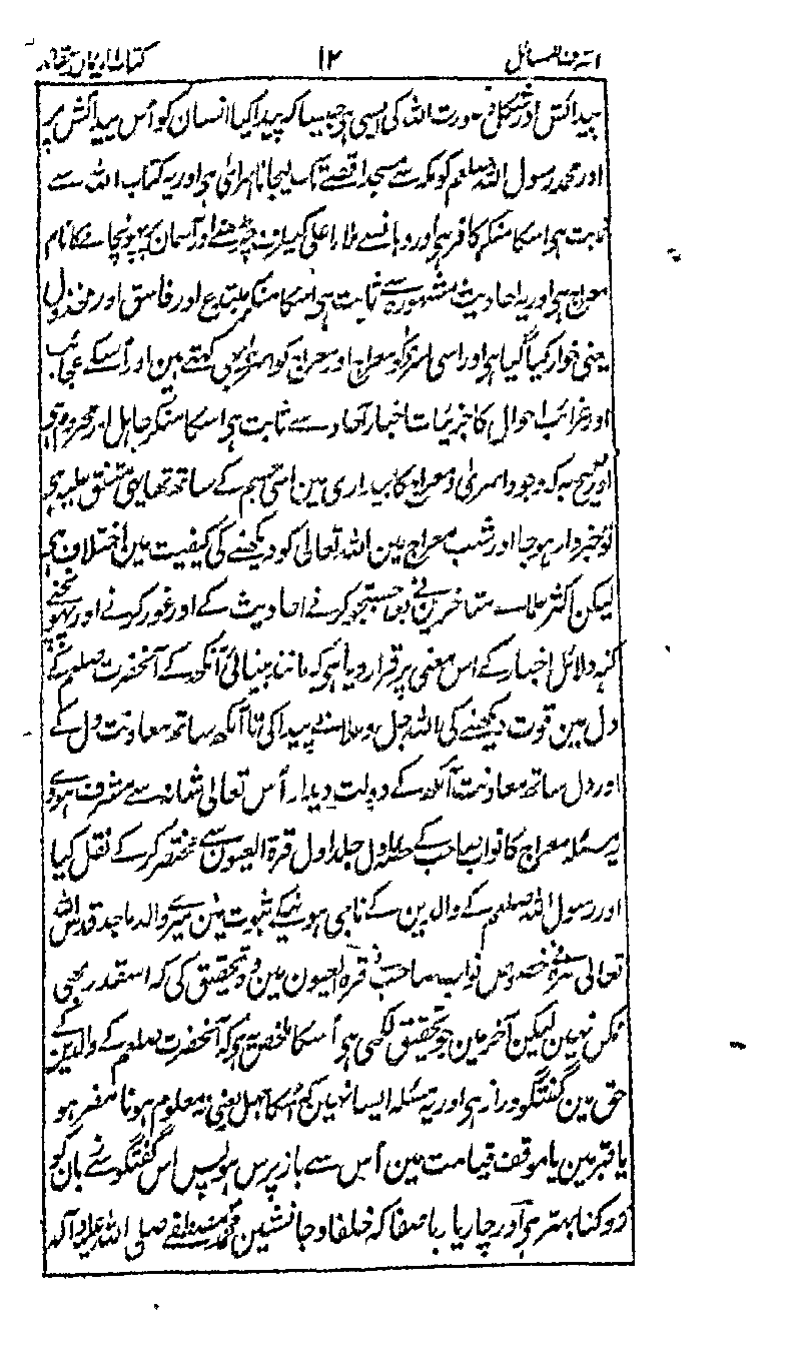 اشرف المسائل ١٢ کتاب الایمان والعقائد
پیدائش اور شکل و صورت اللہ کی ایسی ہی جیسا کہ پیدا کیا انسان کو اُس پیدائش پر
اور محمد رسول اللہ صلعم کو مکہ سے مسجد اقصے تک لیجانا اسرای ہی اور یہ کتاب اللہ سے
ثابت ہی اسکا منکر کافر ہی اور وہانسے ملاء اعلی کیطرف چڑھنے اور آسمان پر پہونچانے کا نام
معراج ہی اور یہ احادیث مشہورہ سے ثابت ہی اسکا منکر مبتدع اور فاسق اور مخذول
یعنی خوار کیا گیا ہی اور اسی اسری کو معراج اور معراج کو اسری بھی کہتے ہین اور اُسکے عجائب
اور غرائب احوال کا جزئیات اخبار آحاد سے ثابت ہی اسکا منکر جاہل اور محروم ہی
اور صحیح یہ کہ وجود اسری و معراج کا بیداری مین اسی جسم کے ساتھ تھا یہی متفق علیہ ہی
تو خبردار ہو جا اور شب معراج مین اللہ تعالی کو دیکھنے کی کیفیت مین اختلاف ہی
لیکن اکثر علماے متاخرین نے بعد جستجو کرنے احادیث کے اور غور کرنے اور پہونچنے
کنہ دلائل اخبار کے اس معنی پر قرار دیا ہی کہ مانند بینائی آنکھ کے آنحضرت صلعم کے
دل مین قوت دیکھنے کی اللہ جل و علا نے پیدا کی تا آنکھ ساتھ معاونت دل کے
اور دل ساتھ معاونت آنکھ کے دولت دیدار اُس تعالی شانہ سے مشرف ہووے
یہ مسئلہ معراج کا نواب صاحب کے حصہ اول جلد اول قرۃ العیون سے مختصر کر کے نقل کیا
اور رسول اللہ صلعم کے والدین کے ناجی ہونیکے ثبوت مین میرے والد ماجد قدس اللہ
تعالی سرہ خصوص نواب صاحب نے قرۃ العیون مین وہ تحقیق کی کہ اسقدر بھی
ممکن نہین لیکن آخر مین جو تحقیق لکھی ہی اُسکا ملخص یہ ہی کہ آنحضرت صلعم کے والدین کے
حق مین گفتگو دراز ہی اور یہ مسئلہ ایسا نہین کہ اُسکا جہل یعنی نہ معلوم ہونا مضر ہو
یا قبر مین یا موقف قیامت مین اُس سے باز پرس ہو پس اس گفتگو سے زبان کو
روکنا بہتر ہی اور چار یار باصفا کہ خلفا و جانشین محمد مصطفے صلی اللہ علیہ وآلہ